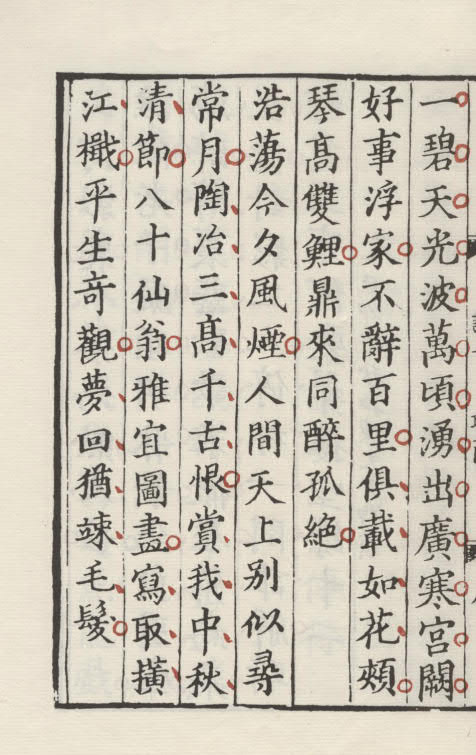 一碧天光波萬頃湧出廣寒宮闕
好事浮家不辭百里俱載如花頰
琴高雙鯉鼎來同醉孤絕
浩蕩今夕風煙人間天上別似尋
常月陶冶三高千古恨賞我中秋
清節八十仙翁雅宜圖畫寫取橫
江檝平生竒觀夢回猶竦毛髮